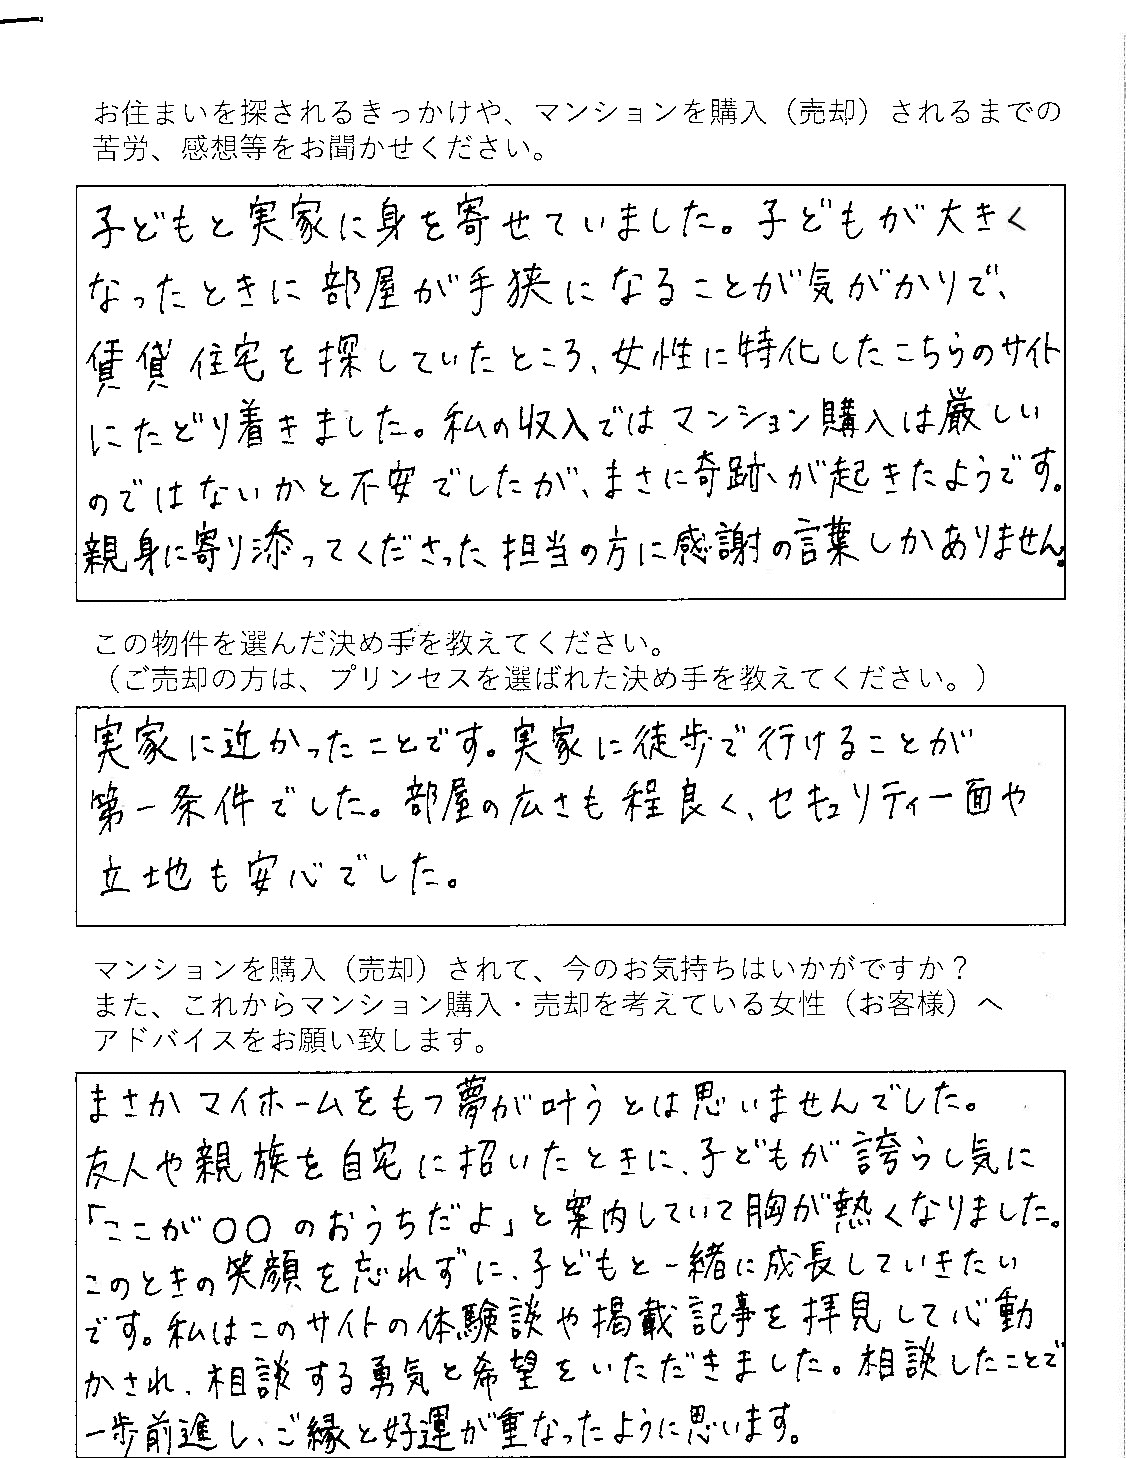 お住まいを探されるきっかけや、マンションを購入（売却）されるまでの
苦労、感想等をお聞かせください。
子どもと実家に身を寄せていました。子どもが大きく
なったときに部屋が手狭になることが気がかりで、
賃貸住宅を探していたところ、女性に特化したこちらのサイト
にたどり着きました。私の収入ではマンション購入は厳しい
のではないかと不安でしたが、まさに奇跡が起きたようです。
親身に寄り添ってくださった担当の方に感謝の言葉しかありません。
この物件を選んだ決め手を教えてください。
（ご売却の方は、プリンセスを選ばれた決め手を教えてください。）
実家に近かったことです。実家に徒歩で行けることが
第一条件でした。部屋の広さも程良く、セキュリティ一面や
立地も安心でした。
マンションを購入（売却）されて、今のお気持ちはいかがですか？
また、これからマンション購入・売却を考えている女性（お客様）へ
アドバイスをお願い致します。
まさかマイホームをもつ夢が叶うとは思いませんでした。
友人や親族を自宅に招いたときに、子どもが誇らし気に
「ここが〇〇のおうちだよ」と案内していて胸が熱くなりました。
このときの笑顔を忘れずに、子どもと一緒に成長していきたい
です。私はこのサイトの体験談や掲載記事を拝見して心動
かされ、相談する勇気と希望をいただきました。相談したことで
一歩前進し、ご縁と好運が重なったように思います。